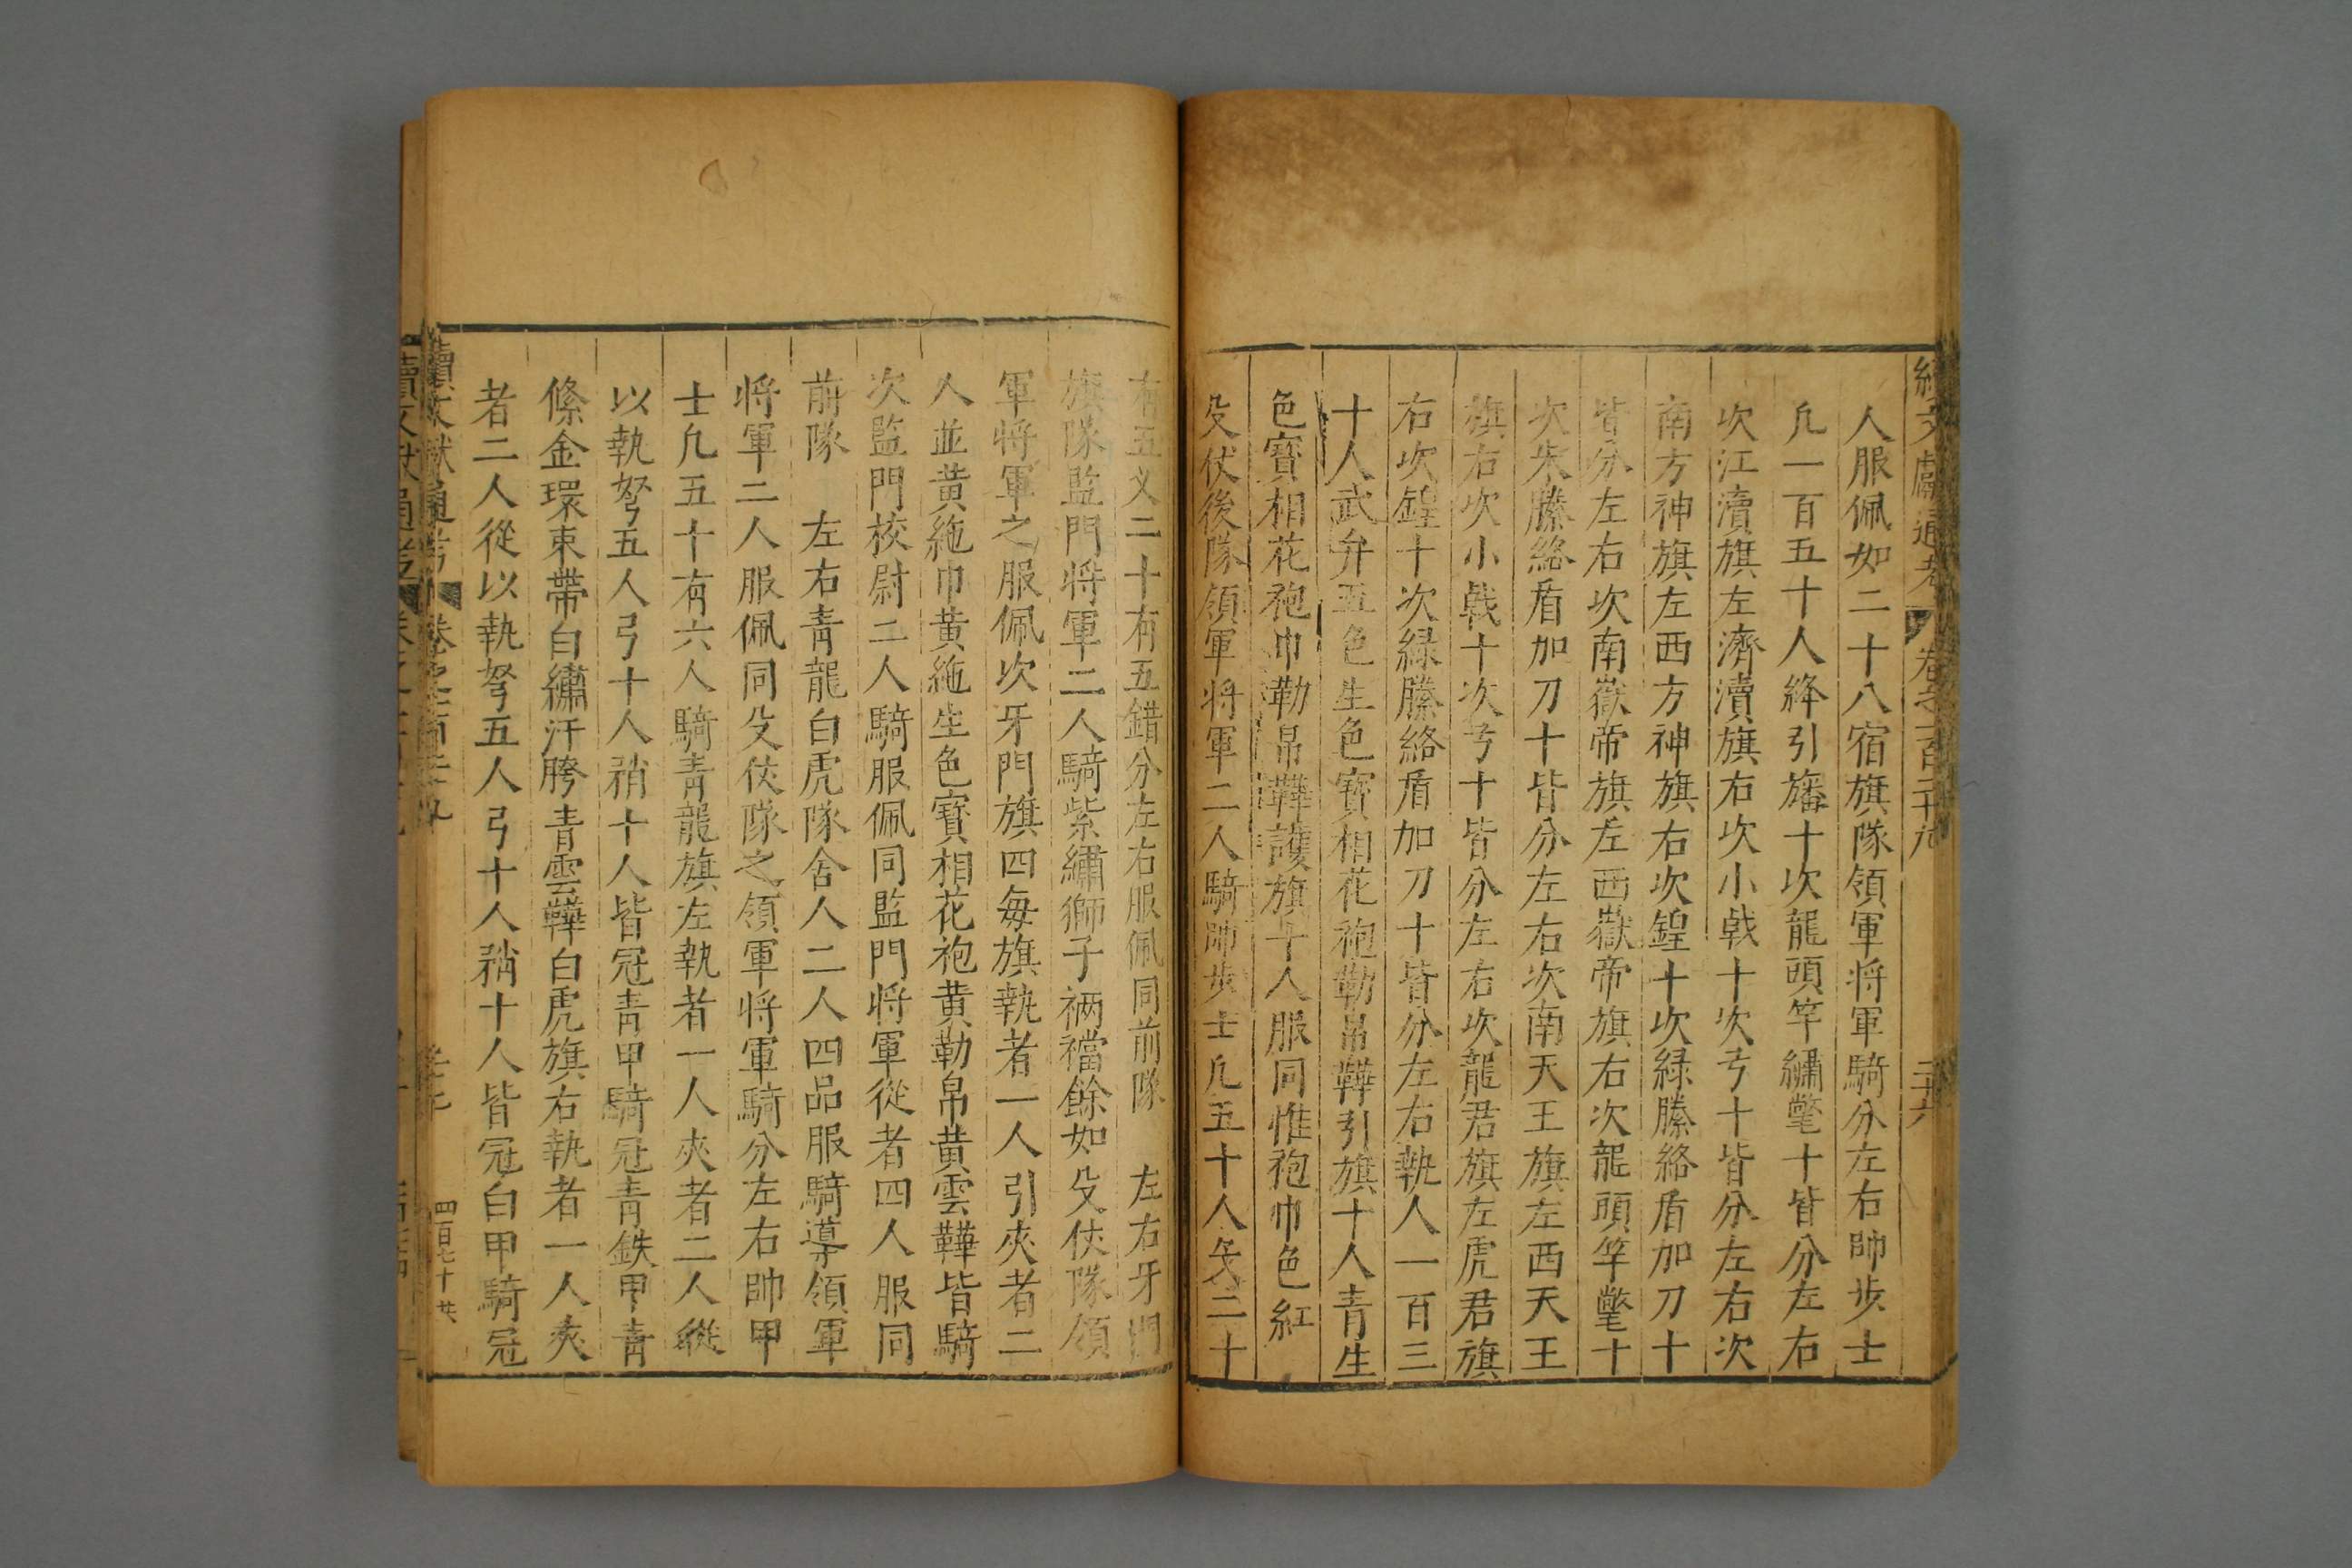 續文獻通考 卷之一百二十九 二十六
人服佩如二十八宿旗隊領軍将軍騎分左右帥步士
凢一百五十人絳引旛十次龍頭竿繡氅十皆分左右
次江瀆旗左濟瀆旗右次小戟十次弓十皆分左右次
南方神旗左西方神旗右次鍠十次緑縢絡盾加刀十
皆分左右次南嶽帝旗左西嶽帝旗右次龍頭竿氅十
次朱縢絡盾加刀十皆分左右次南天王旗左西天王
旗右次小戟十次弓十皆分左右次龍君旗左虎君旗
右次鍠十次緑縢絡盾加刀十皆分左右執人一百三
十人武弁五色生色寳相花袍勒帛鞾引旗十人青生
色寳相花袍巾勒帛鞾護旗十人服同惟袍巾色紅
殳仗後隊領軍将軍二人騎帥步士凢五十人戈二十
有五叉二十有五錯分左右服佩同前隊 左右牙門
旗隊監門将軍二人騎紫繡獅子裲襠餘如殳仗隊領
軍将軍之服佩次牙門旗四每旗執者一人引夾者二
人並黄絁巾黄絁生色寳相花袍黄勒帛黄雲鞾皆騎
次監門校尉二人騎服佩同監門将軍從者四人服同
前隊 左右青龍白虎隊舍人二人四品服騎導領軍
将軍二人服佩同殳仗隊之領軍将軍騎分左右帥甲
士凢五十有六人騎青龍旗左執者一人夾者二人從
以執弩五人弓十人矟十人皆冠青甲騎冠青鉄甲青
絛金環束帶白繡汗胯青雲鞾白虎旗右執者一人夾
者二人從以執弩五人弓十人矟十人皆冠白甲騎冠
續文獻通考 卷之一百二十九
四百七十